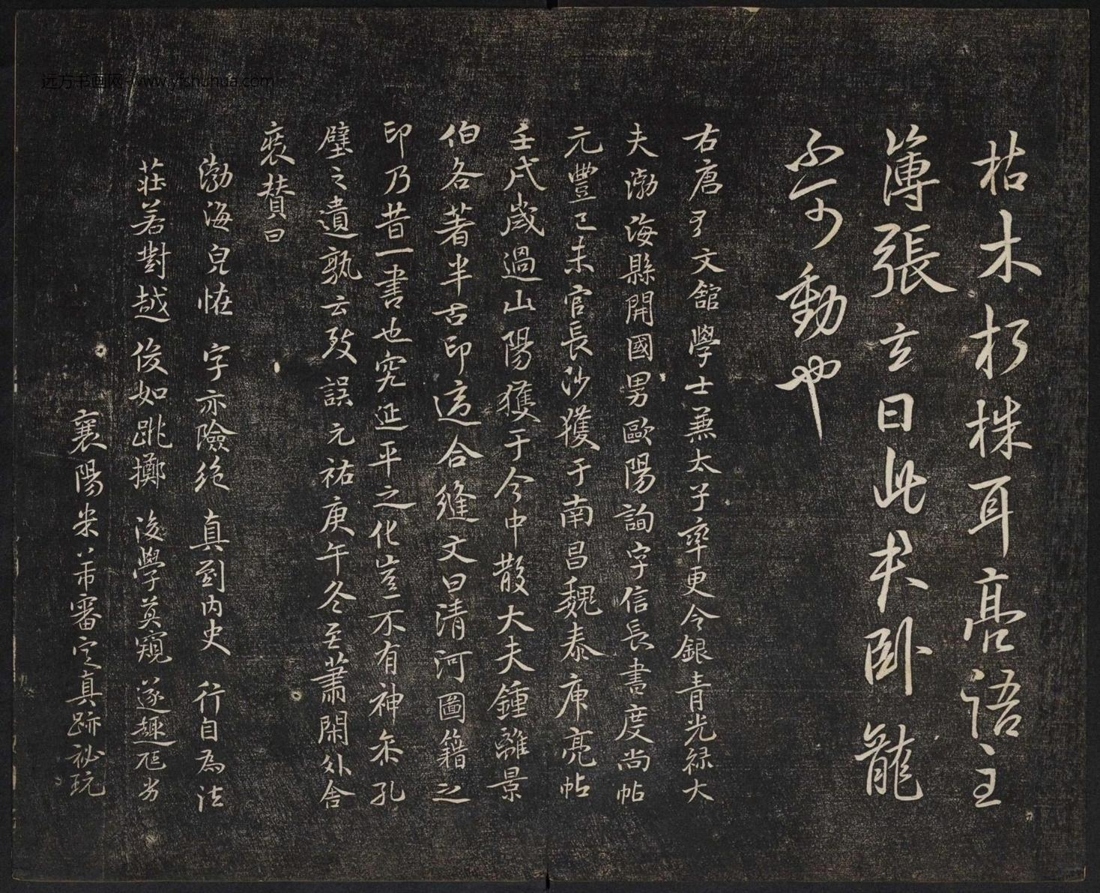 远方书画网 - www.yfshuhua.com
枯木朽株耳亮語主
簿張玄曰此夫卧龍
不可動也
右唐弘文舘學士兼太子率更令銀青光祿大
夫渤海縣開國男歐陽詢字信長書度尚帖
元豐己未官長沙獲于南昌魏泰庾亮帖
壬戌歲過山陽獲于今中散大夫鍾離景
伯各著半古印這合縫文曰清河圖籍之
印乃昔一書也究延平之化豈不有神尒孔
璧之遺孰云致誤元祐庚午冬至蕭閑外舍
裝賛曰
渤海皃怪 字亦險絕 真到內史 行自為法
莊若對越 俊如跳擲 後學莫窺 遂趣尫劣
襄陽米芾審定真跡祕玩